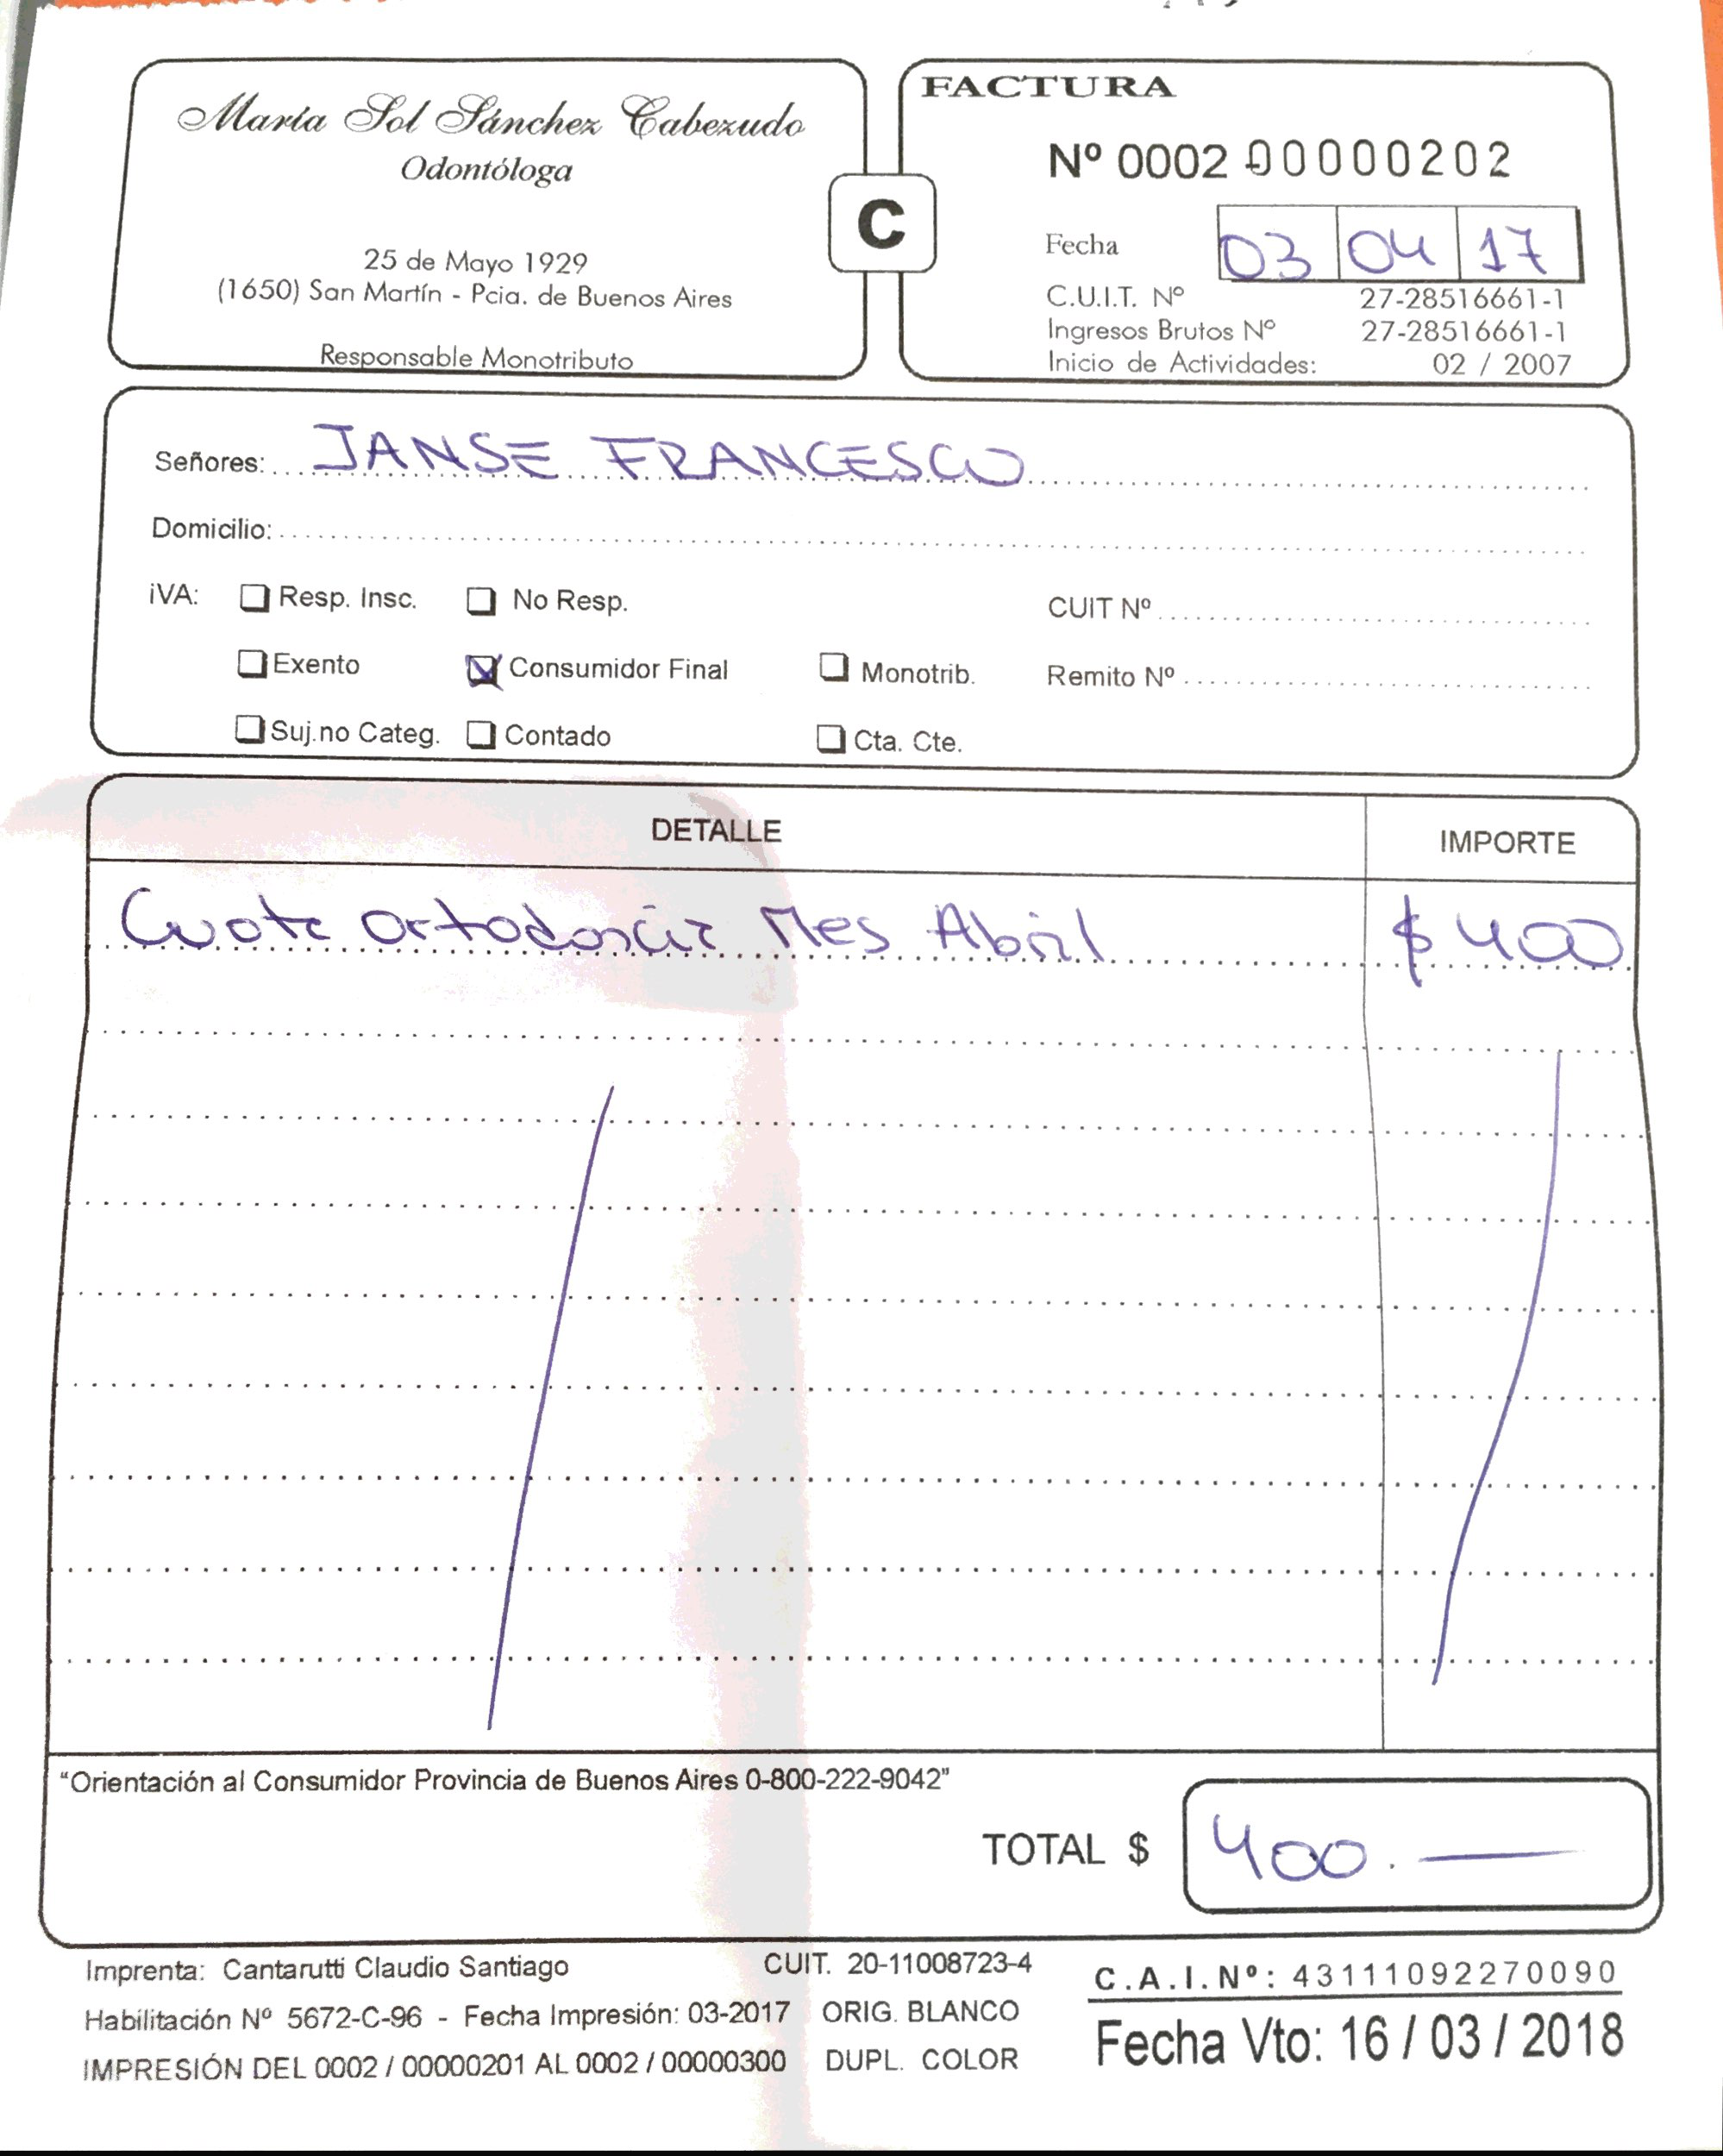 María Sol Sánchez Cabezudo
Odontóloga
25 de Mayo 1929
(1650) San Martín - Pcia. de Buenos Aires
Responsable Monotributo
C
FACTURA
Nº 0002 00000202
Fecha 03 04 17
C.U.I.T. Nº 27-28516661-1
Ingresos Brutos Nº 27-28516661-1
Inicio de Actividades: 02 / 2007
Señores: JANSE FRANCESCO
Domicilio:
iVA: Resp. Insc. No Resp. CUIT Nº
Exento Consumidor Final Monotrib. Remito Nº
Suj.no Categ. Contado Cta. Cte.
DETALLE IMPORTE
Cuota Ortodoncia Mes Abril $ 400
“Orientación al Consumidor Provincia de Buenos Aires 0-800-222-9042”
TOTAL $ 400.—
Imprenta: Cantarutti Claudio Santiago CUIT. 20-11008723-4
Habilitación Nº 5672-C-96 - Fecha Impresión: 03-2017 ORIG. BLANCO
IMPRESIÓN DEL 0002 / 00000201 AL 0002 / 00000300 DUPL. COLOR
C.A.I.Nº: 43111092270090
Fecha Vto: 16 / 03 / 2018